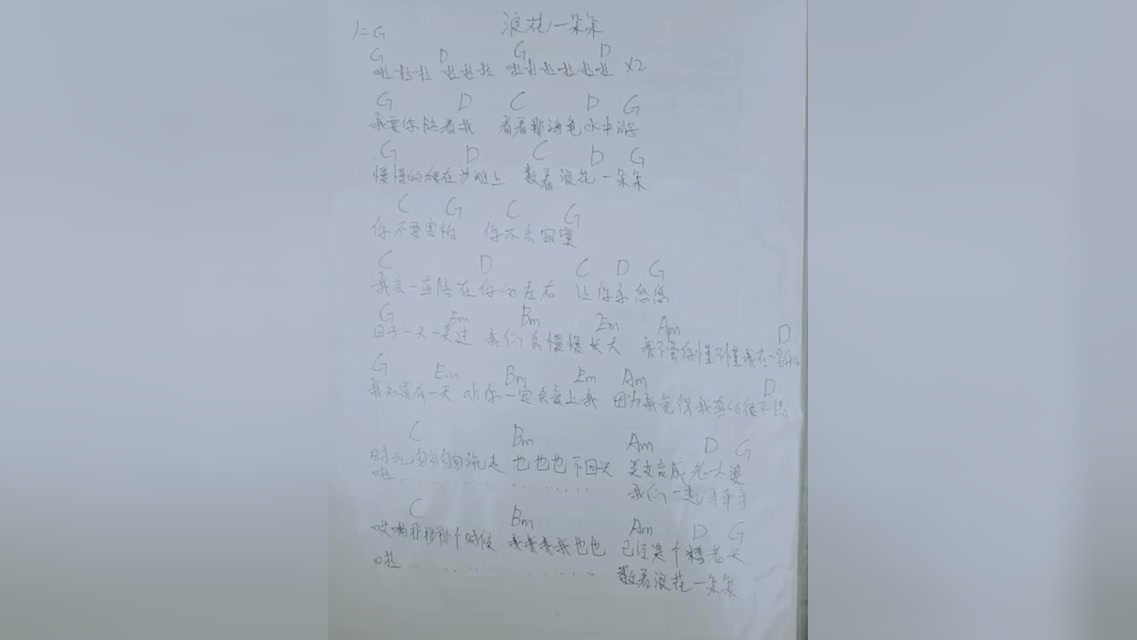 浪花一朵朵
1=G
G D G D
啦啦啦 啦啦啦 啦啦啦啦啦啦 X2
G D C D G
我要你陪着我 看着那海龟水中游
G D C D G
慢慢的爬在沙滩上 数着浪花一朵朵
C G C G
你不要害怕 你不会寂寞
C D C D G
我会一直陪在你的左右 让你乐悠悠
G Em Bm Em Am D
日子一天一天过 我们会慢慢长大 我不管你懂不懂我在
G Em Bm Em Am D
我知道有一天 ah你一定会爱上我 因为我觉得我真的很不错
C Bm Am D G
时光匆匆匆匆流走 也也也不回头 美女变成老太婆
啦................ 我们一起手牵手
C Bm Am D G
哎哟那那那个时候 我我我我也也 已经是个糟老头
啦................ 数着浪花一朵朵